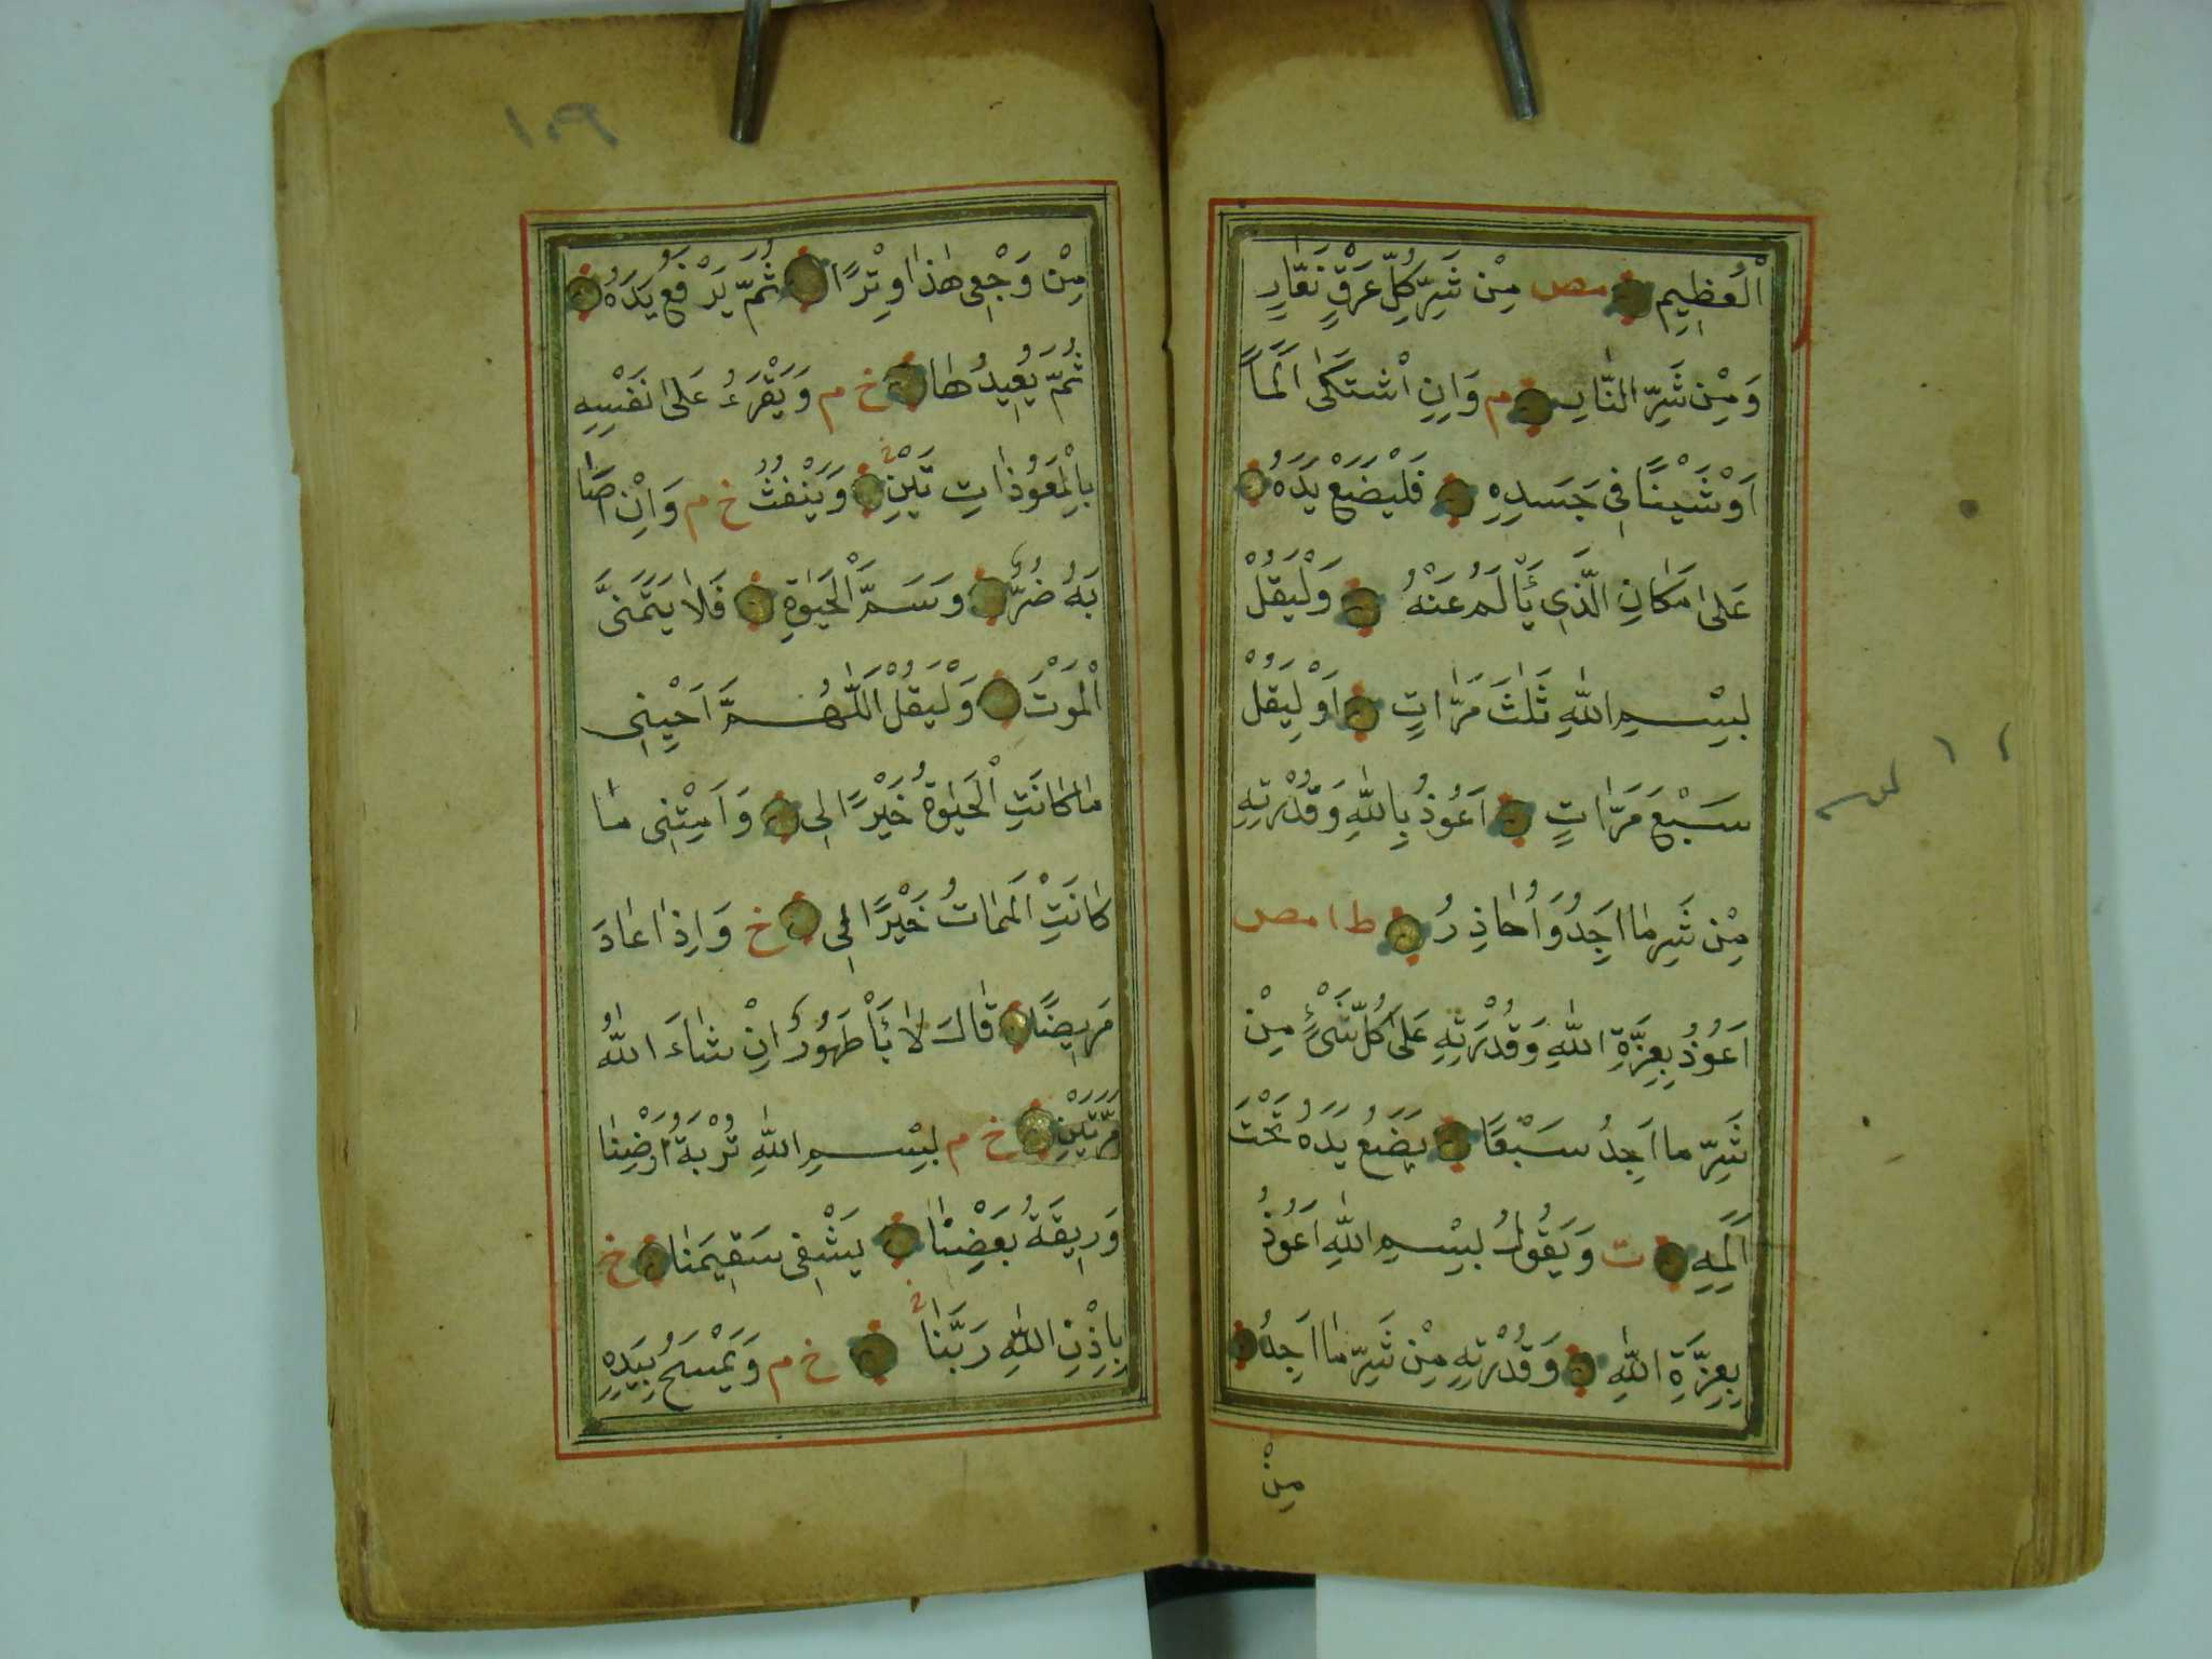 اَلْعَظِيمِ مص مِنْ شَرِّ كُلِّ عَرَقٍ نَعَّارٍ
وَمِنْ شَرِّ النَّارِ م وَاِنِ اشْتَكٰى اَلَمًا
اَوْ شَيْئًا فِى جَسَدِهِ فَلْيَضَعْ يَدَهُ
عَلٰى مَكَانِ الَّذِى يَأْلَمُ عَنْهُ وَلْيَقُلْ
بِسْمِ اللّٰهِ ثَلٰثَ مَرَّاتٍ اَوْ لِيَقُلْ
سَبْعَ مَرَّاتٍ اَعُوذُ بِاللّٰهِ وَقُدْرَتِهِ
مِنْ شَرِ مٰا اَجِدُ وَاُحٰاذِرُ ط ا مص
اَعُوذُ بِعِزَّةِ اللّٰهِ وَقُدْرَتِهِ عَلٰى كُلِّ شَىْءٍ مِنْ
شَرِّ مٰا اَجِدُ سَبْعًا يَضَعُ يَدَهُ تَحْتَ
اَلَمِهِ ت وَيَقُولُ بِسْمِ اللّٰهِ اَعُوذُ
بِعِزَّةِ اللّٰهِ وَقُدْرَتِهِ مِنْ شَرِّ مٰا اَجِدُ
مِنْ
١٠٩
مِنْ وَجْعِى هٰذَا وِتْرًا ثُمَّ يَرْفَعُ يَدَهُ
ثُمَّ يُعِيدُهٰا خ م وَيَقْرَءُ عَلٰى نَفْسِهِ
بِالْمَعُوذٰاتِ تَيْنِ وَيَنْفُثُ خ م وَاِنْ اَصَا
بَهُ ضُرٌّ وَسَـمَّ الْحَيٰوةِ فَلَا يَتَمَنَّى
الْمَوْتَ وَلْيَقُلْ اَللّٰهُمَّ اَحْيِنِى
مٰا كَانَتِ الْحَيٰوةُ خَيْرًا لِى وَاَمِتْنِى مٰا
كٰانَتِ الْمَمٰاتُ خَيْرًا لِى خ وَاِذٰا عٰادَ
مَرِيضًا قٰالَ لٰا بَأْ طَهُورٌ اِنْ شٰاءَ اللّٰهُ
مَرَّتَيْنِ خ م بِسْمِ اللّٰهِ تُرْبَةُ اَرْضِنٰا
وَرِيقَةُ بَعْضِنٰا يَشْفِى سَقِيمَنٰا خ
بِاِذْنِ اللّٰهِ رَبَّنٰا خ م وَيَمْسَحُ بِيَدِهِ